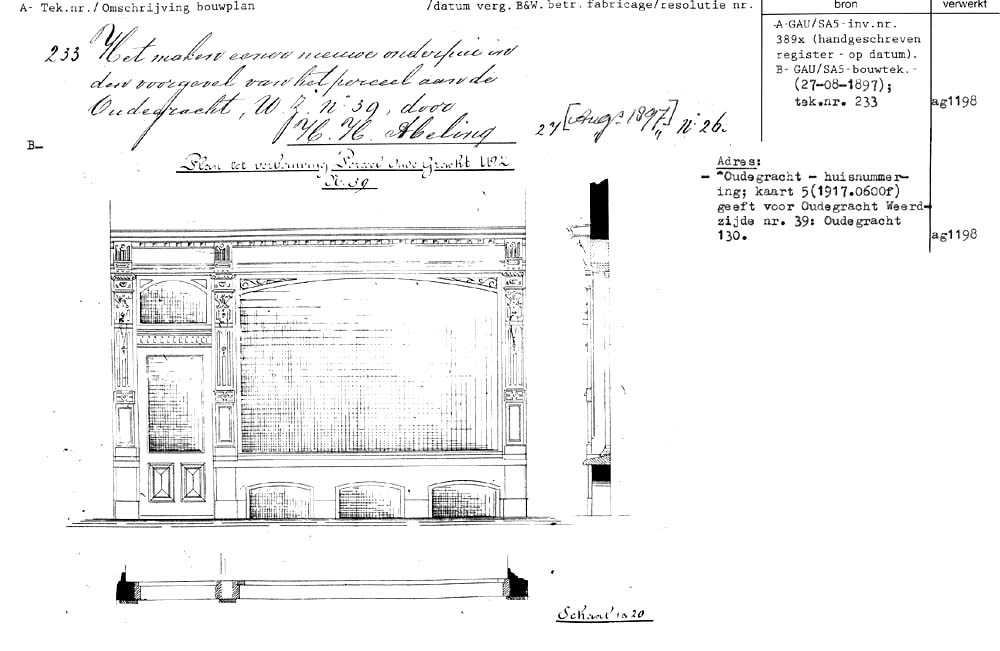 A- Tek.nr./Omschrijving bouwplan
/datum verg. B&W. betr. fabricage/resolutie nr.
bron
verwerkt
233 Het maken eener nieuwe onderpui in
den voorgevel van het perceel aan de
Oudegracht, W.Z. Nº 39, door
H. H. Abeling
27 [Aug. 1897] „ Nº 26.
A-GAU/SA5-inv.nr.
389x (handgeschreven
register - op datum).
B- GAU/SA5-bouwtek.-
(27-08-1897);
tek.nr. 233
ag1198
B-
Plan tot verbouwing Perceel Oude Gracht WZ
N. 39
Adres:
- *Oudegracht - huisnummer-
ing; kaart 5(1917.0600f)
geeft voor Oudegracht Weerd-
zijde nr. 39: Oudegracht
130.
ag1198
Schaal 1 à 20